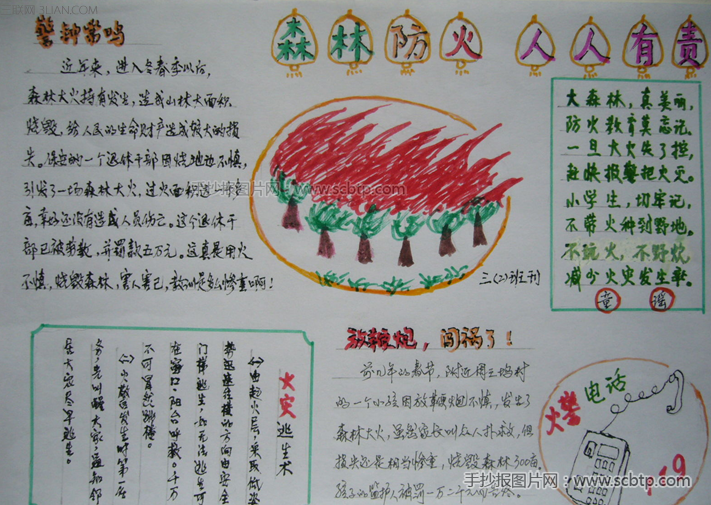 三联网 3LIAN.COM
森林防火 人人有责
警钟常鸣
近年来，进入冬春季以后，
森林大火持有发生，造成山林大面积
烧毁，给人民的生命财产造成很大的损
失。 的一个退休干部因烧地边不慎，
引发了一场森林大火，过火面积达一
亩，幸好还没有造成人员伤亡。这个退休干
部已被 ，并罚款五万元。这真是用火
不慎，烧毁森林，害人害己，教训是多么惨重啊！
手抄报图片网 - www.scbtp.com
三(2)班刊
大森林，真美丽，
防火教育莫忘记。
一旦大火失了控，
赶快报警把火灭。
小学生，切牢记，
不带火种到野地。
不玩火，不野炊，
减少火灾发生率。
童谣
火灾逃生术
(一)由起火层，采取低姿
势迅速往楼的方向由安全
门梯逃生，如无法逃生可
在窗口、阳台呼救。千万
不可冒然跳楼。
(二)火灾 发生时第一任
务先叫醒大家，通知邻
居大家尽早逃生。
放鞭炮，闯祸了！
前几年的春节，附近周王 村
的一个小孩因放鞭炮不慎，发生了
森林大火，虽然家长叫众人扑救，但
损失还是相当惨重，烧毁森林300亩，
孩子的监护人被罚一万二千元
火警电话
119
手抄报图片网
www.scbtp.com